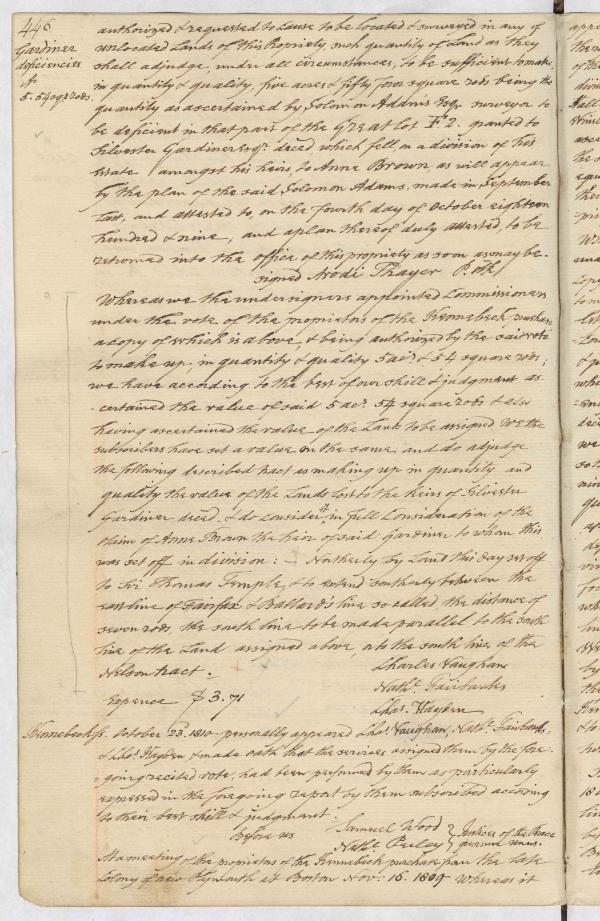 446
Gardiner
deficiencies
A
5.54 sqr rods.
authorized & requested to cause to be located & surveyed in any of
unlocated Lands of this Propriety, such quantity of Land as they
shall adjudge, under all circumstances, to be sufficient to make
in quantity & quality, five acres & fifty four square rods being the
quantity as ascertained by Solomon Addms Esqr. surveyor to
be deficient in that part of the Great Lot F. 2. granted to
Silvester Gardiner Esqr. deced which fell on a division of his
estate amongst his heirs, to Anne Brown, as will appear
by the plan of the said Solomon Adams, made in September
last, and attested to, on the fourth day of October eighteen
hundred & nine, and a plan thereof duly attested, to be
returned into the office of this propriety as soon as may be.
signed Arodi Thayer P. Clk
Whereas we the undersigners appointed Commissioners
under the vote of the proprietors of the Kennebeck purchase
a copy of which is above, & being authorized by the said vote
to make up, in quantity & quality 5 acs. & 54 square rods;
we have according to the best of our skill & judgment as-
-certained the value of said 5 acs. 54 square rods & also
having ascertained the value of the Lands to be assigned We the
subscribers have set a value on the same and do adjudge
the following described tract as making up in quantity and
quality the value of the Lands lost to the heirs of Silvester
Gardiner deced. & do consider it in full Consideration of the
claim of Anne Brown the heir of said Gardiner to whom this
was set off in division: — Northerly by Land this day set off
to Sir Thomas Temple, & to extend southerly between the
east line of Fairfax & Ballard's line so called, the distance of
seven rods, the south line to be made parallel to the south
line of the Land assigned above, or to the south line of the
Nelson tract.
Charles Vaughan
Nathl. Fairbanks
Expence $3.71
Chas. Hayden
Kennebeck ss. October 23. 1810. personally appeared Chs. Vaughan, Nathl. Fairbanks,
& Chs. Hayden & made oath that the services assigned them by the fore-
-going recited vote, had been performed by them as particularly
expressed in the foregoing report by them subscribed according
to their best skill & judgment.
Before us
Samuel Wood
Nathl. Perley
Justices of the Peace
quorum unus.
At a meeting of the proprietors of the Kennebeck purchase from the late
Colony of new Plymouth at Boston Nov. 16. 1809 Whereas it